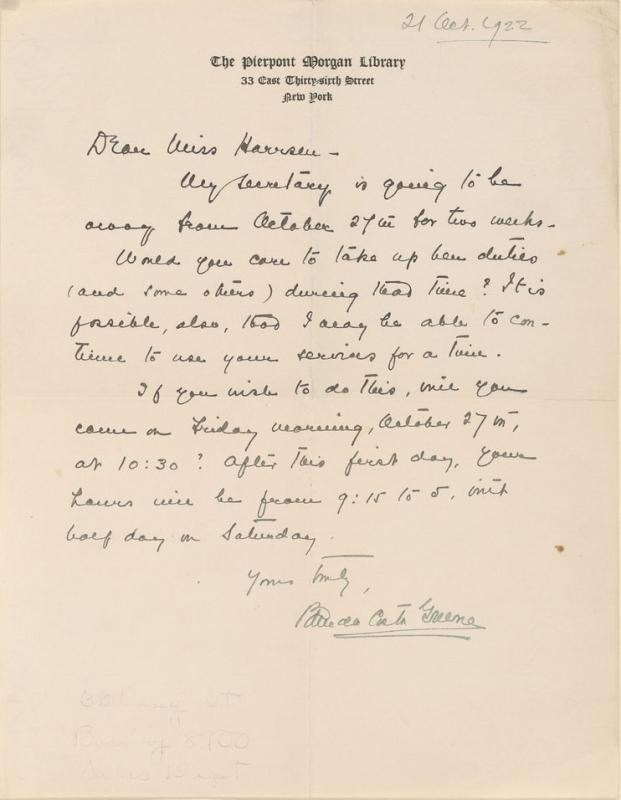 21 Oct. 1922
The Pierpont Morgan Library
33 East Thirty-sixth Street
New York
Dear Miss Harrsen -
My secretary is going to be
away from October 27th for two weeks -
Would you care to take up her duties
(and some others) during that time? It is
possible, also, that I may be able to con-
tinue to use your services for a time.
If you wish to do this, will you
come on Friday morning, October 27th,
at 10:30? After this first day, your
hours will be from 9:15 to 5, with
half day on Saturday.
Yours truly,
Belle da Costa Greene